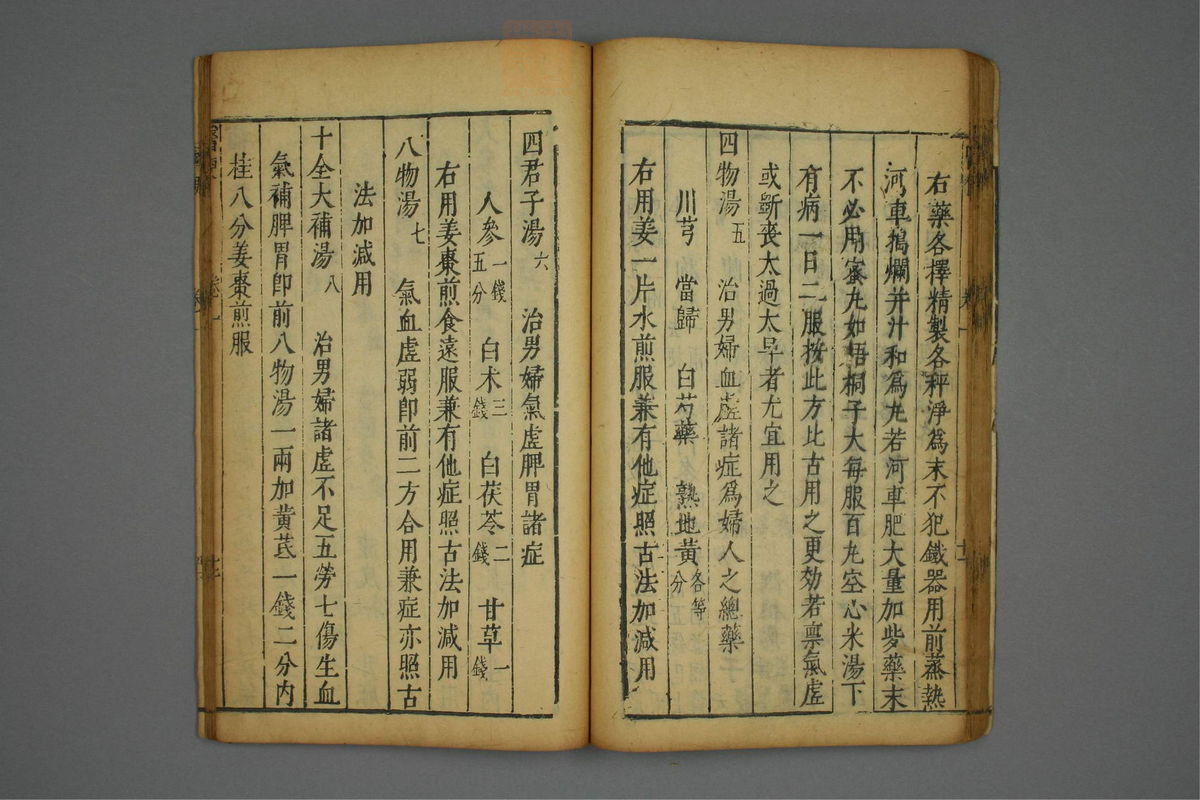 右藥各擇精製各秤淨爲末不犯鐵器用前蒸熟
河車搗爛并汁和爲丸若河車肥大量加些藥末
不必用蜜丸如梧桐子大每服百丸空心米湯下
有病一日二服按此方比古用之更効若禀氣虛
或斷喪太過太早者尤宜用之
四物湯五 治男婦血虛諸症爲婦人之總藥
川芎 當歸 白芍藥 熟地黃各等分
右用姜一片水煎服兼有他症照古法加減用
四君子湯六 治男婦氣虛脾胃諸症
人參一錢五分 白朮三錢 白茯苓二錢 甘草一錢
右用姜棗煎食遠服兼有他症照古法加減用
八物湯七 氣血虛弱卽前二方合用兼症亦照古
法加減用
十全大補湯八 治男婦諸虛不足五勞七傷生血
氣補脾胃卽前八物湯一兩加黃芪一錢二分內
桂八分姜棗煎服